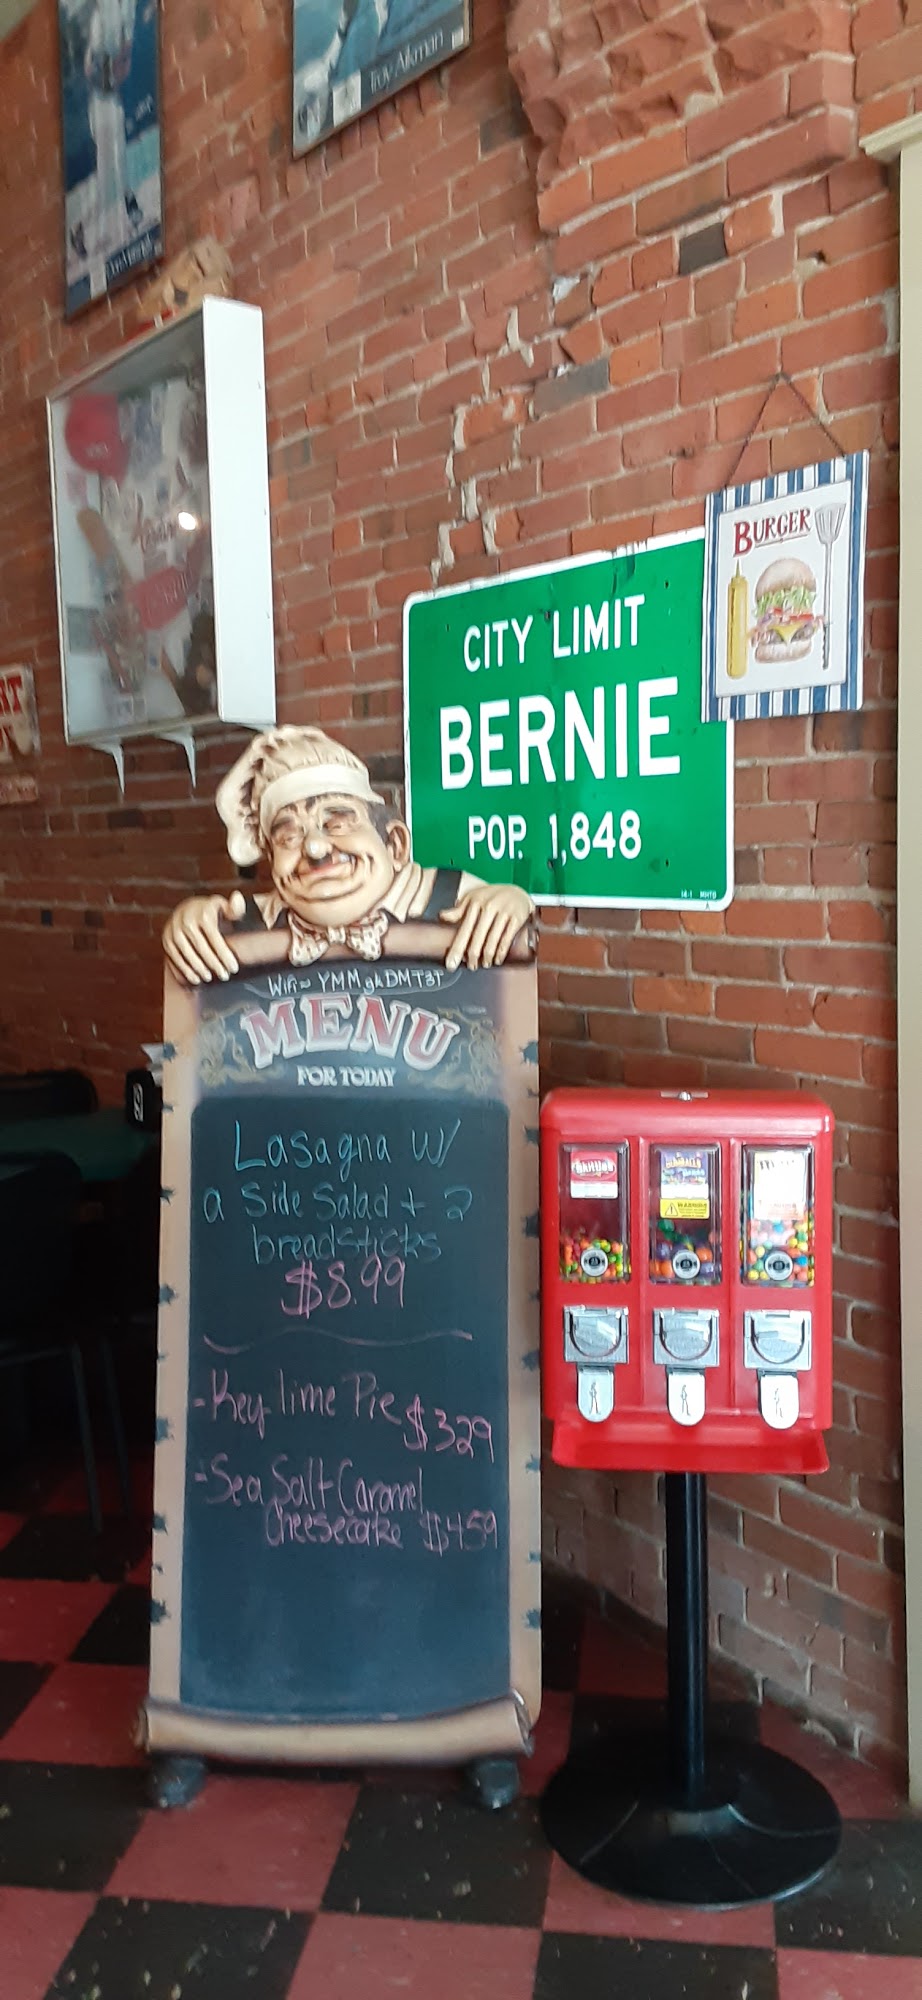 Troy Aikman
BURGER
CITY LIMIT
BERNIE
POP. 1,848
WiFi = YMMgkDMT3T
MENU
FOR TODAY
Lasagna w/
a Side Salad + 2
breadsticks
$8.99
- Key lime Pie $3.29
- Sea Salt Caramel
Cheesecake $4.59
WARNING